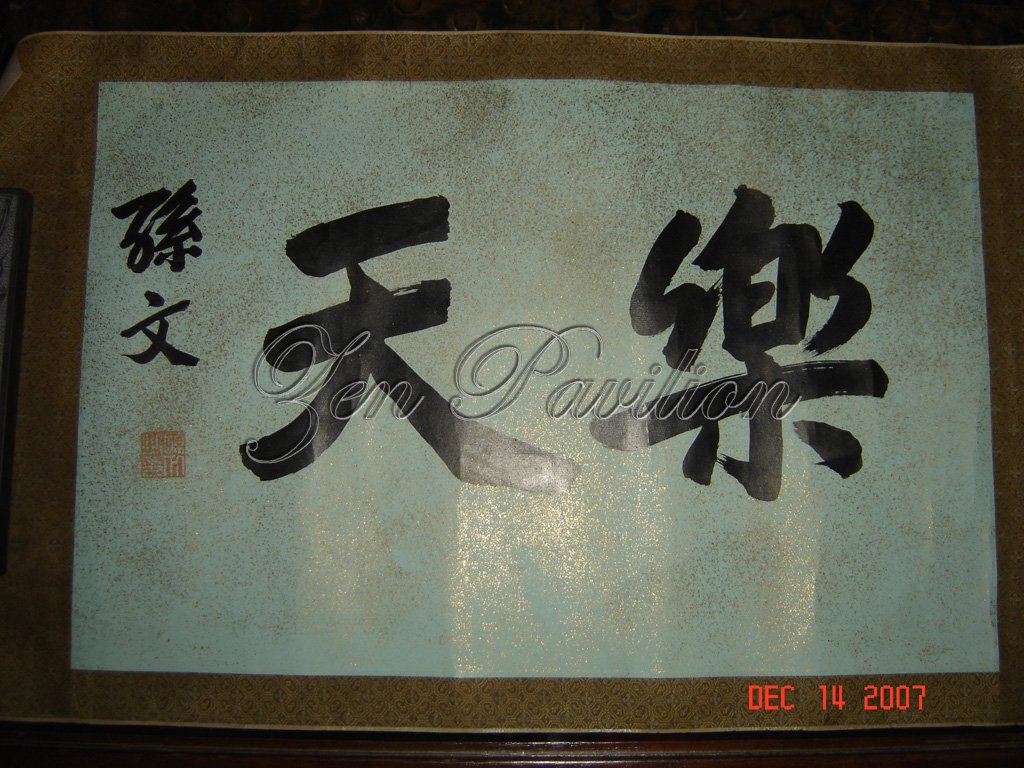 樂天
孫文
Zen Pavilion
DEC 14 2007